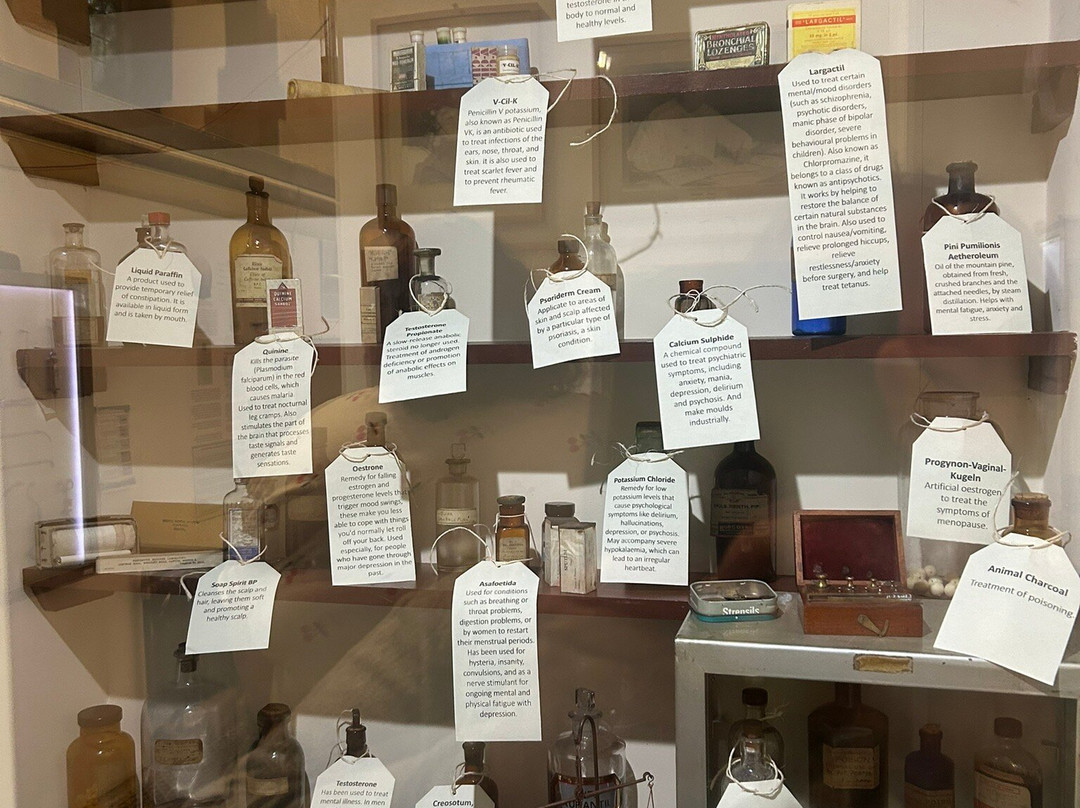 testosterone in the
body to normal and
healthy levels.
BRONCHIAL
LOZENGES
"LARGACTIL"
V-CIL-K
V-Cil-K
Penicillin V potassium,
also known as Penicillin
VK, is an antibiotic used
to treat infections of the
ears, nose, throat, and
skin. it is also used to
treat scarlet fever and
to prevent rheumatic
fever.
Largactil
Used to treat certain
mental/mood disorders
(such as schizophrenia,
psychotic disorders,
manic phase of bipolar
disorder, severe
behavioural problems in
children). Also known as
Chlorpromazine, it
belongs to a class of drugs
known as antipsychotics.
It works by helping to
restore the balance of
certain natural substances
in the brain. Also used to
control nausea/vomiting,
relieve prolonged hiccups,
relieve
restlessness/anxiety
before surgery, and help
treat tetanus.
Pini Pumilionis
Aetheroleum
Oil of the mountain pine,
obtained from fresh,
crushed branches and the
attached needles, by steam
distillation. Helps with
mental fatigue, anxiety and
stress.
Liquid Paraffin
A product used to
provide temporary relief
of constipation. It is
available in liquid form
and is taken by mouth.
QUININE
CALCIUM
Quinine
Kills the parasite
(Plasmodium
falciparum) in the red
blood cells, which
causes malaria
Used to treat nocturnal
leg cramps. Also
stimulates the part of
the brain that processes
taste signals and
generates taste
sensations.
Testosterone
Propionate
A slow-release anabolic
steroid no longer used.
Treatment of androgen
deficiency or promotion
of anabolic effects on
muscles.
Psoriderm Cream
Applicate to areas of
skin and scalp affected
by a particular type of
psoriasis, a skin
condition.
Calcium Sulphide
A chemical compound
used to treat psychiatric
symptoms, including
anxiety, mania,
depression, delirium
and psychosis. And
make moulds
industrially.
Oestrone
Remedy for falling
estrogen and
progesterone levels that
trigger mood swings,
these make you less
able to cope with things
you'd normally let roll
off your back. Used
especially, for people
who have gone through
major depression in the
past.
Potassium Chloride
Remedy for low
potassium levels that
cause psychological
symptoms like delirium,
hallucinations,
depression, or psychosis.
May accompany severe
hypokalaemia, which can
lead to an irregular
heartbeat.
Progynon-Vaginal-
Kugeln
Artificial oestrogen
to treat the
symptoms of
menopause.
Soap Spirit BP
Cleanses the scalp and
hair, leaving them soft
and promoting a
healthy scalp.
Asafoetida
Used for conditions
such as breathing or
throat problems,
digestion problems, or
by women to restart
their menstrual periods.
Has been used for
hysteria, insanity,
convulsions, and as a
nerve stimulant for
ongoing mental and
physical fatigue with
depression.
Strepsils
Animal Charcoal
Treatment of poisoning.
Testosterone
Has been used to treat
mental illness. In men
Creosotum,